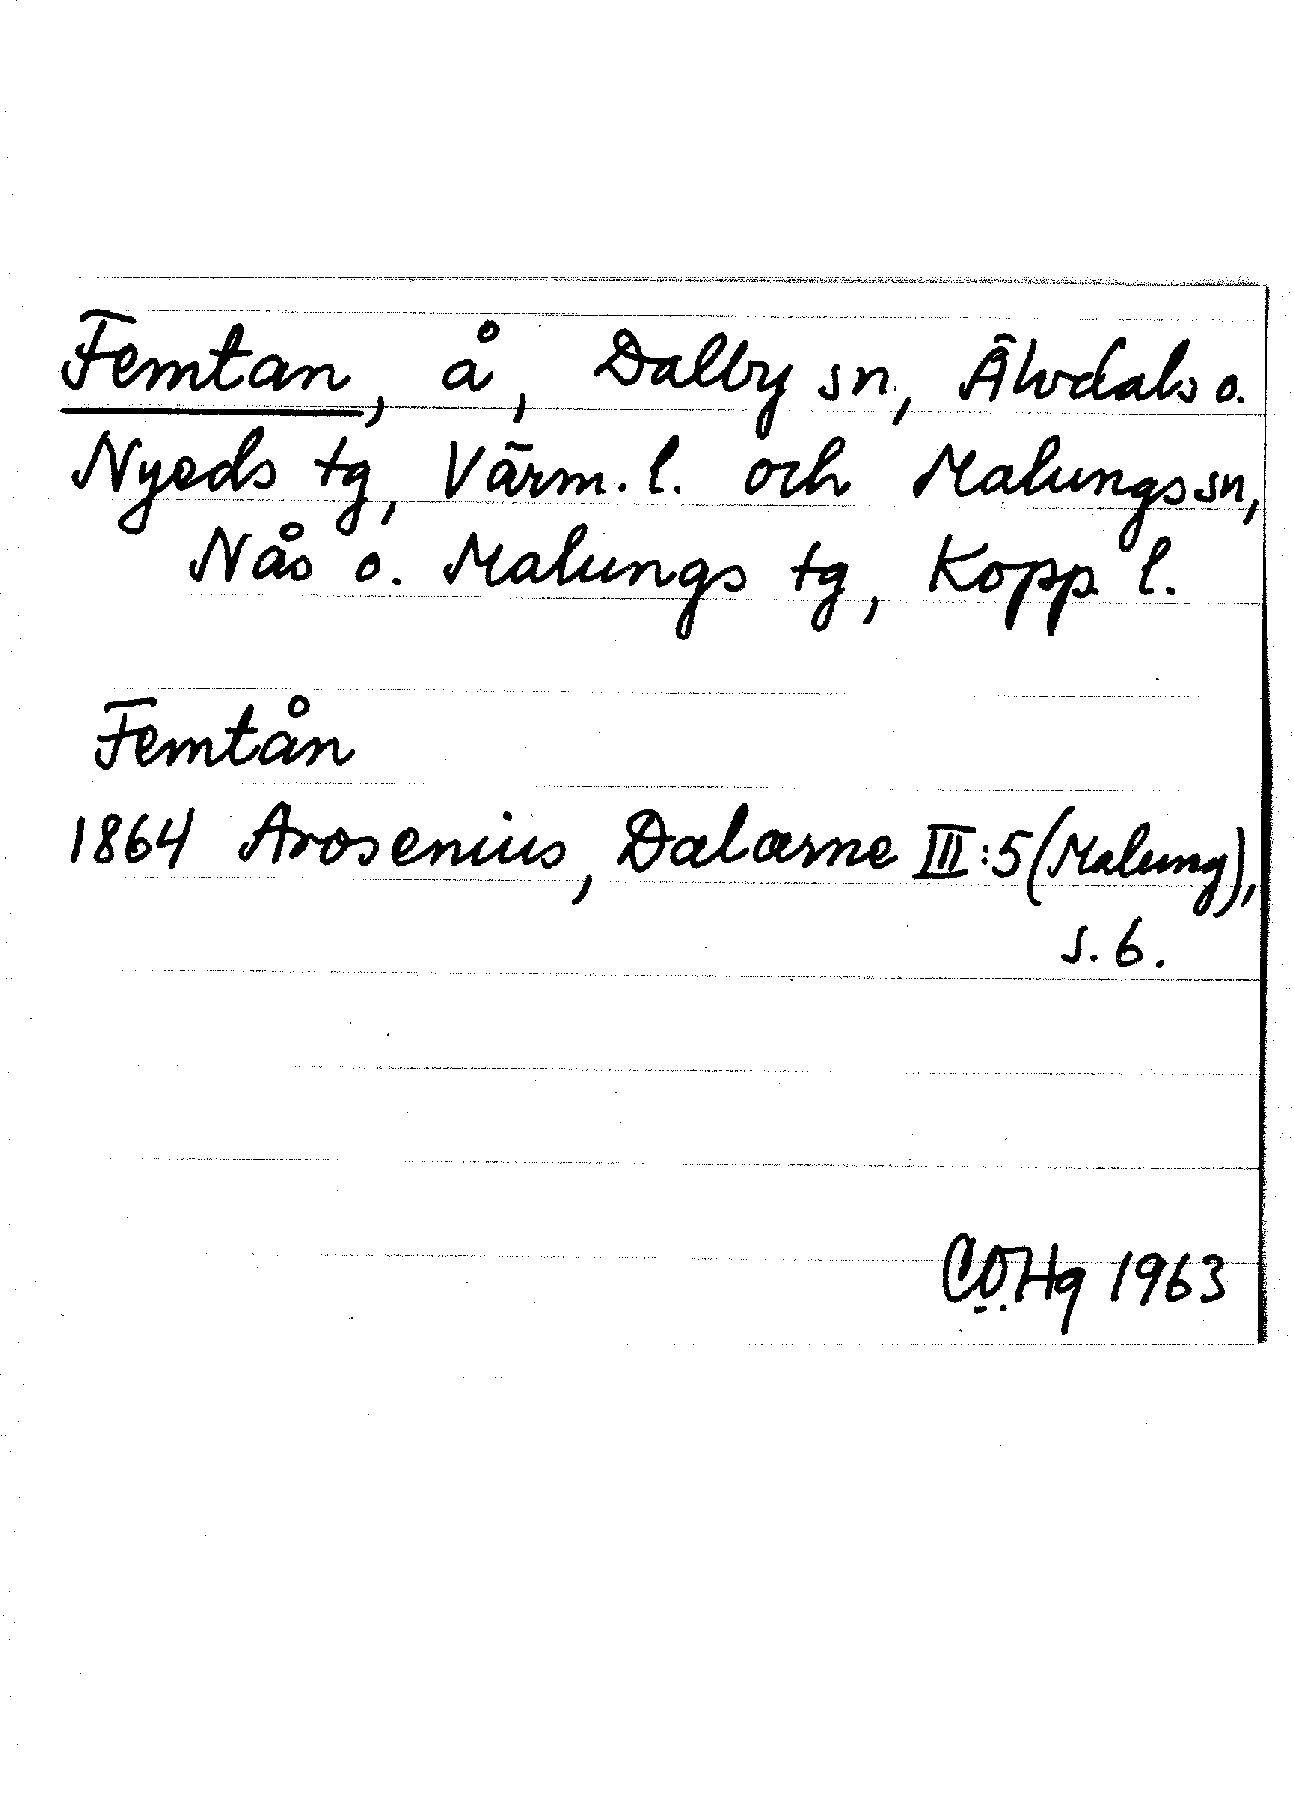 Femtan, å, Dalby sn, Älvdals o.
Nyeds tg, Värm. l. och Malungs sn,
Nås o. Malungs tg, Kopp. l.
Femtån
1864 Arosenius, Dalarne III:5 (Malung),
s. 6.
CÖHg 1963